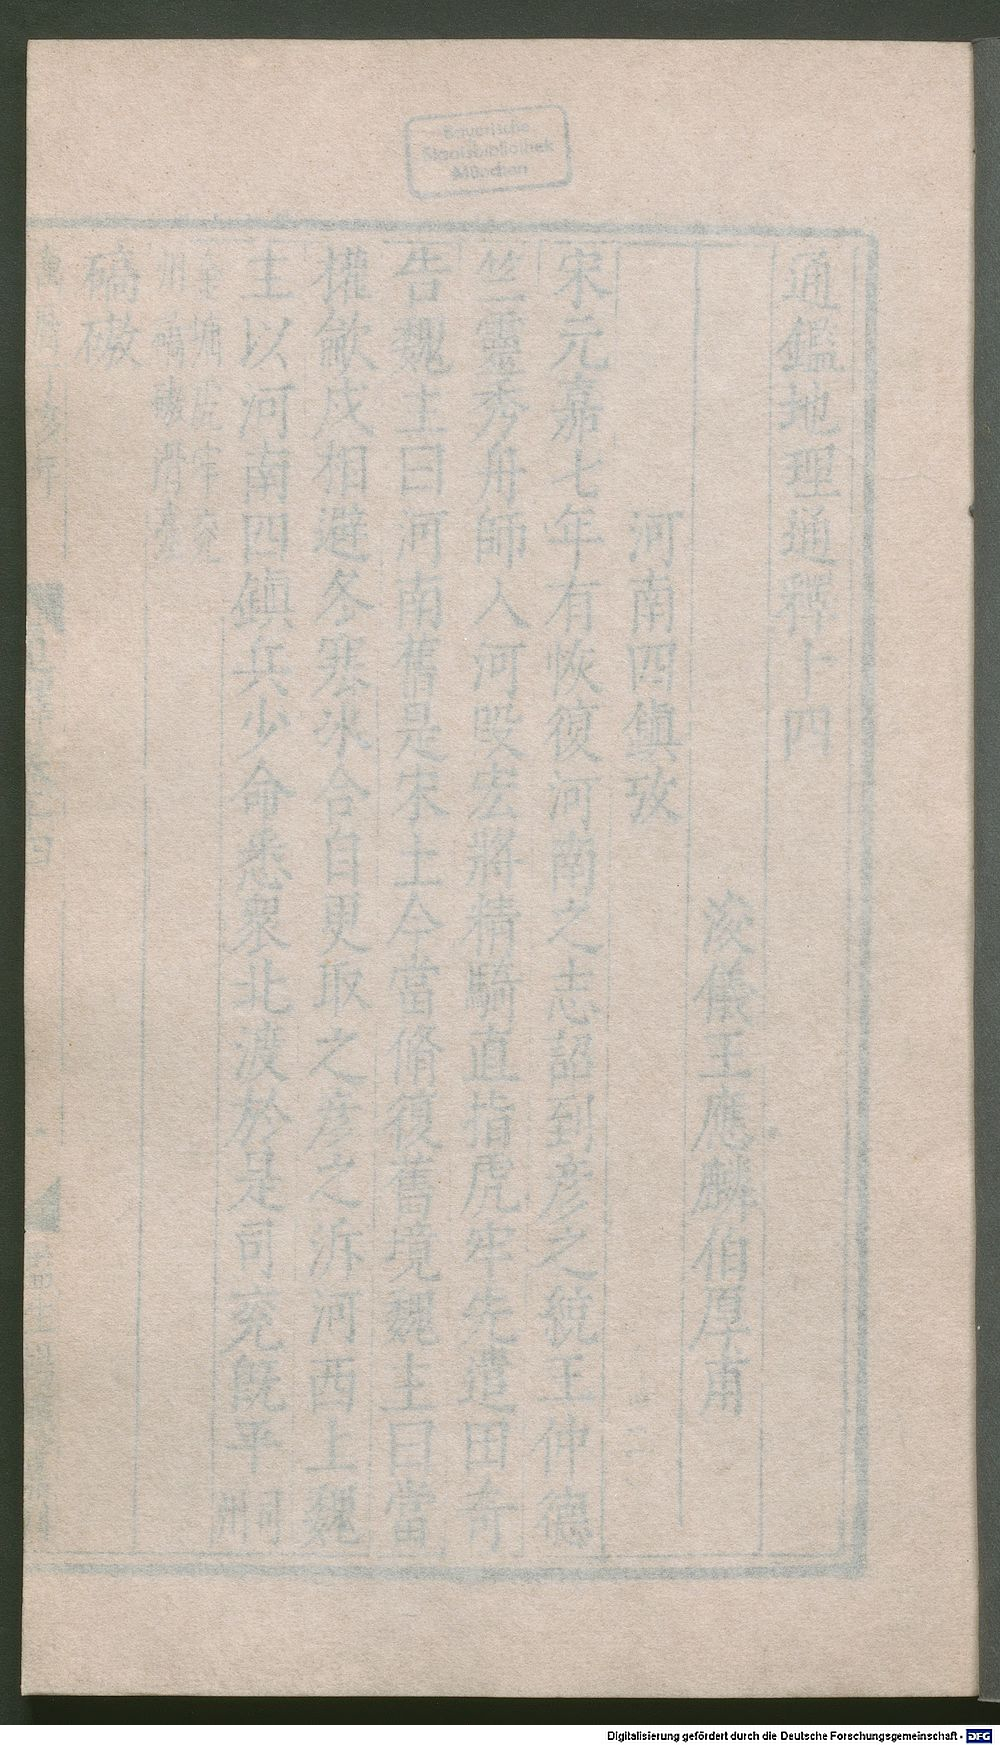 Bayerische
Staatsbibliothek
München
通鑑地理通釋十四
浚儀王應麟伯厚甫
河南四鎮攷
宋元嘉七年有恢復河南之志詔到彥之統王仲德
竺靈秀舟師入河叚宏將精騎直指虎牢先遣田奇
告魏主曰河南舊是宋土今當脩復舊境魏主曰當
權斂戍相避冬寒冰合自更取之彥之泝河西上魏
主以河南四鎮兵少命悉衆北渡於是司兗既平司
州
金墉虎牢兗
州碻磝滑臺
碻磝
Digitalisierung gefördert durch die Deutsche Forschungsgemeinschaft - DFG